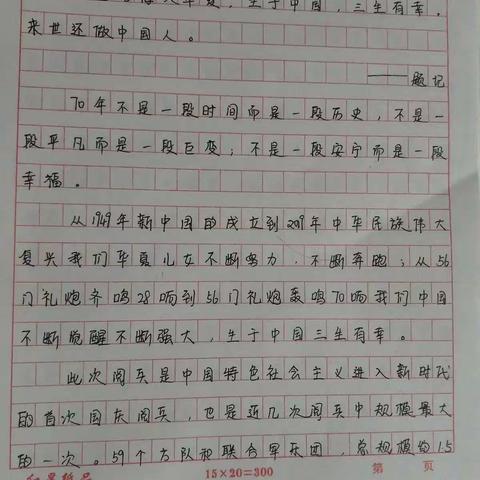 华夏，生于中国，三生有幸，
来世还做中国人。
——题记
70年不是一段时间而是一段历史，不是一
段平凡而是一段巨变；不是一段安宁而是一段
幸福。
从1949年新中国的成立到2019年中华民族伟大
复兴我们华夏儿女不断努力，不断奔跑；从56
门礼炮齐鸣28响到56门礼炮轰鸣70响我们中国
不断觉醒不断强大，生于中国三生有幸。
此次阅兵是中国特色社会主义进入新时代
的首次国庆阅兵，也是近几次阅兵中规模最大
的一次。59个方队和联合军乐团，总规模约1.5
15×20=300 第 页